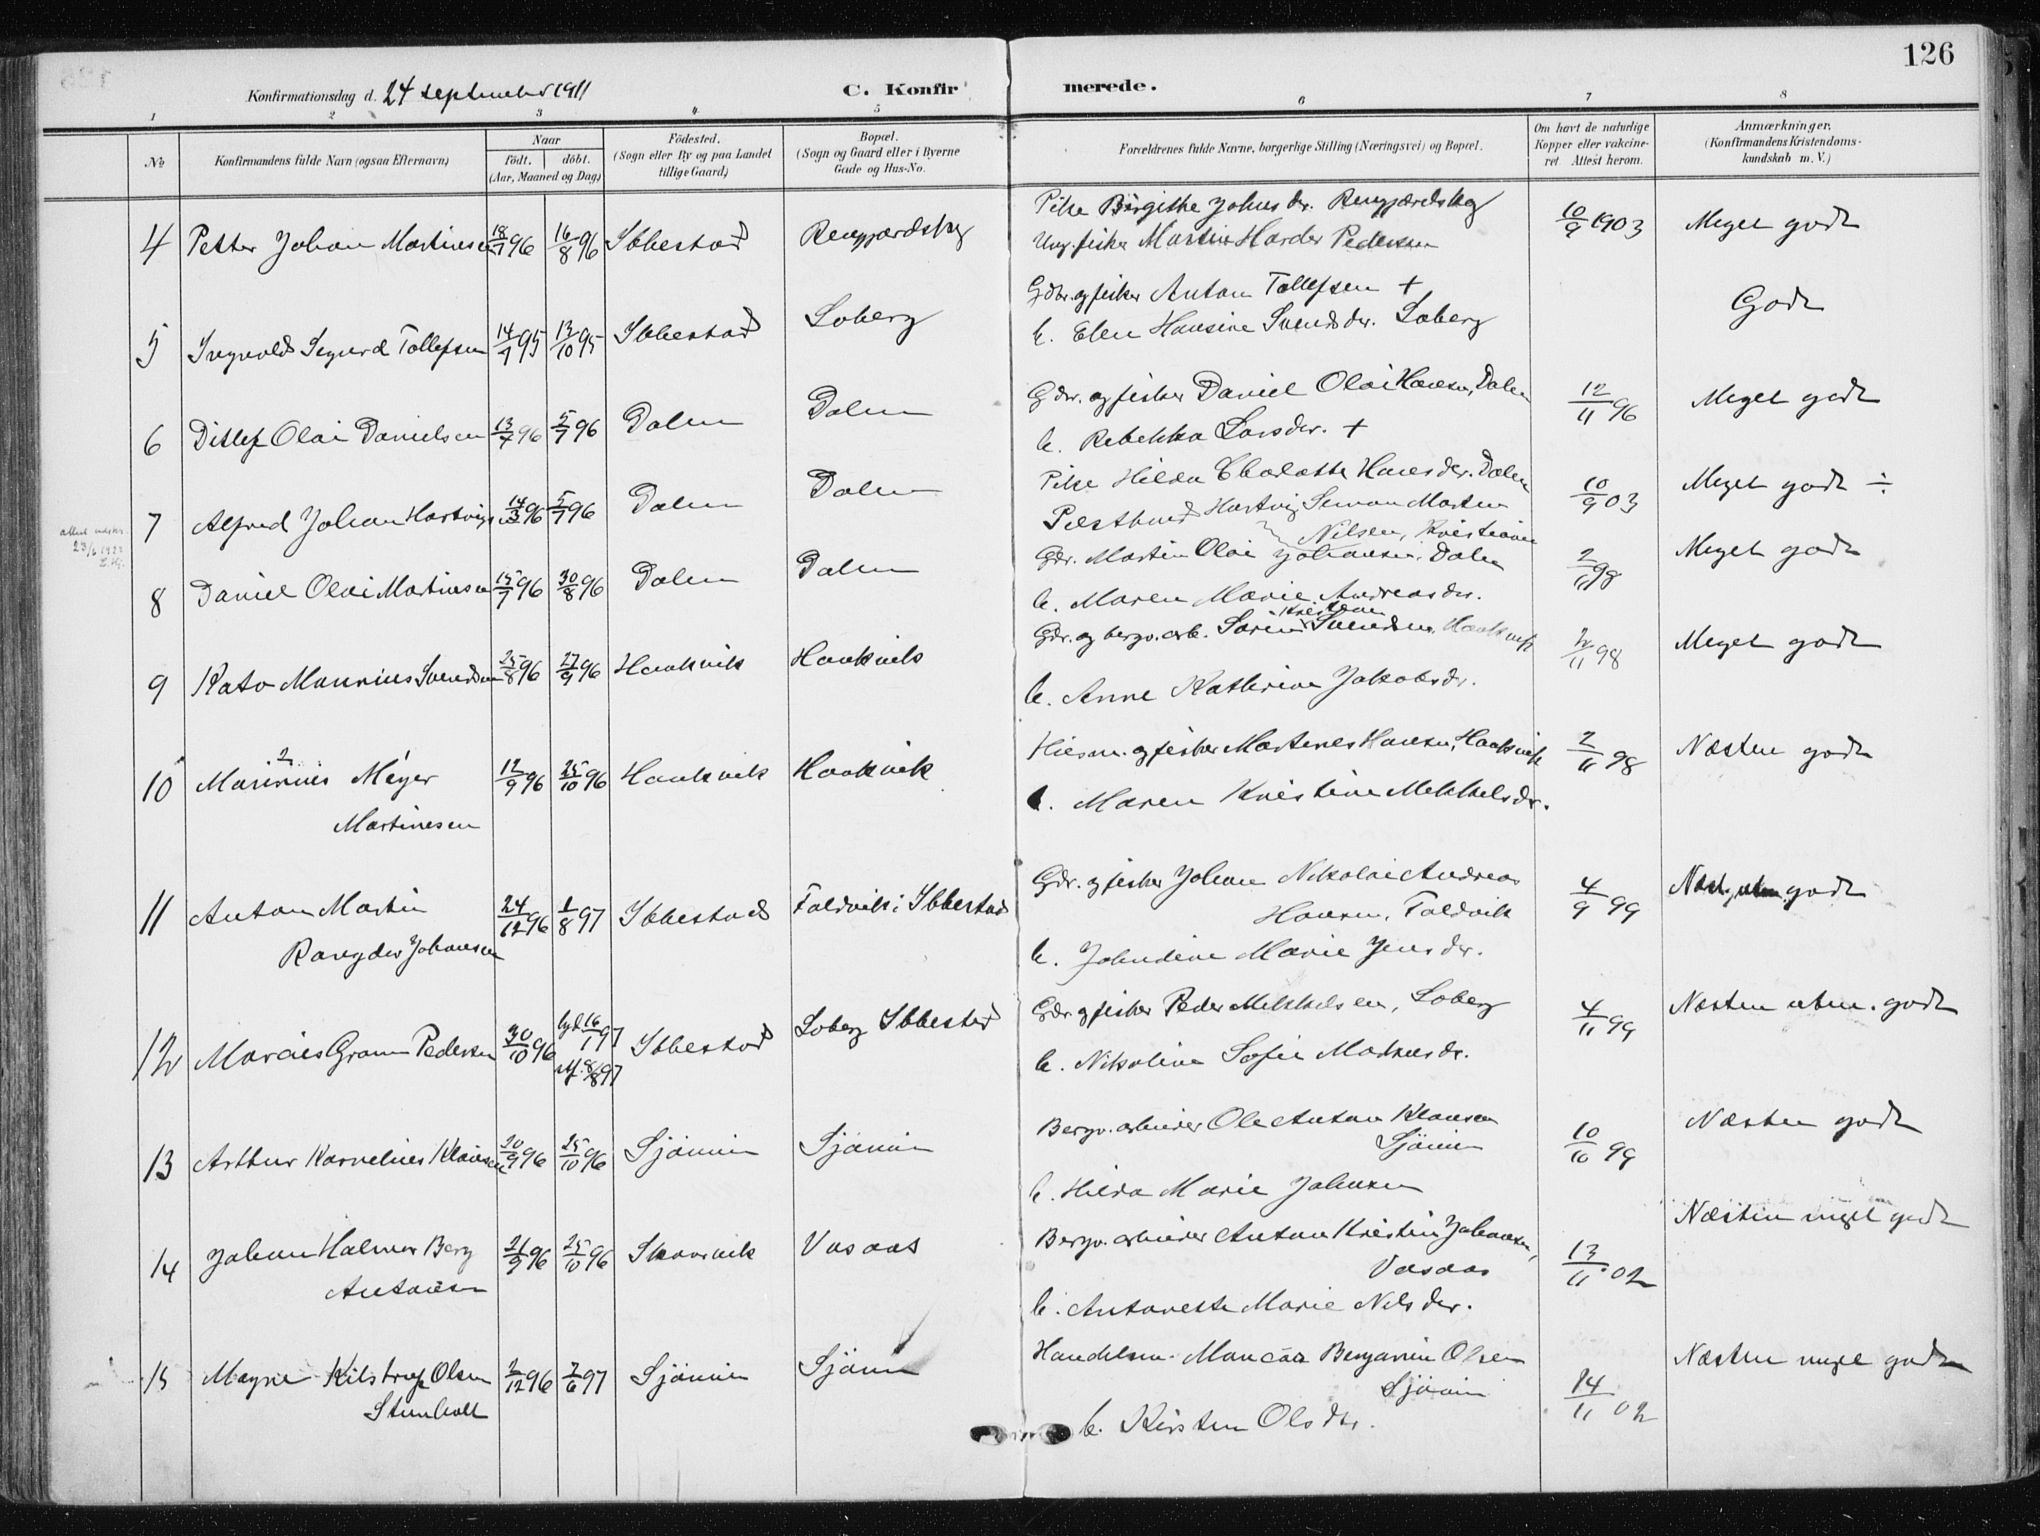 126
Konfirmationsdag d. 24 september 1911
C. Konfirmerede.
1 2 3 4 5 6 7 8
No
Konfirmandens fulde Navn (ogsaa Efternavn)
Naar
födt. döbt.
(Aar, Maaned og Dag)
Födested.
(Sogn eller By og paa Landet
tillige Gaard)
Bopæl.
(Sogn og Gaard eller i Byerne
Gade og Hus-No.
Forældrenes fulde Navne, borgerlige Stilling (Næringsvei) og Bopæl.
Om havt de naturlige
Kopper eller vakcine-
ret. Attest herom.
Anmærkninger.
(Konfirmandens Kristendoms-
kundskab m. V.)
4 Petter Johan Martinsen 18/7 96 16/8 96 Ibbestad
Pike Birgithe Johnsdr.
Ung. fisker Martin Harder Pedersen
10/9 1903 Meget godt
5 Ingvald Sigurd Tollefsen 14/7 95 13/10 95 Ibbestad Soberg
Gdbr. og fisker Anton Tollefsen +
h. Elen Hansine Svendsdr. Soberg
Godt
6 Ditlef Olai Danielsen 13/4 96 5/7 96 Dalen Dalen
Gdr. og fisker Daniel Olai Hansen, Dalen
h. Rebekka Larsdr. +
12/11 96 Meget godt
7 Alfred Johan Hartvigs 14/3 96 5/7 96 Dalen Dalen
Pike Hilda Charlotte Hansdr. Dalen
Hartvig Simon Morten
Nilsen, Kristiania
10/9 03 Meget godt ÷
23/6 1923
8 Daniel Olai Martinsen 15/7 96 30/8 96 Dalen Dalen
Gdr. Martin Olai Johansen, Dalen
h. Maren Marie Andreasdr.
2/11 98 Meget godt
9 Kato Maurius Svendsen 25/8 96 27/9 96 Haakvik Haakvik
Gdr. og bergv. arb. Sören Kristian Svendsen, Haakvik
h. Anne Kathrine Jakobsdr.
2/11 98 Meget godt
10 Marinius Meyer
Martinesen
12/9 96 25/10 96 Haakvik Haakvik
Husm. og fisker Martines Hansen, Haakvik
h. Maren Kristine Mekkelsdr.
2/11 98 Næsten godt
11 Anton Martin
Johansen
24/12 96 1/8 97 Ibbestad Foldvik i Ibbestad
Gdr. og fisker Johan Nikolai Andreas
Hansen, Foldvik
h. Johndine Marie Jensdr.
4/9 99 Næst. utm. godt
12 Gram Pedersen 30/10 96 16/1 97
8/8 97
Ibbestad Soberg Ibbestad
Gdr. og fisker Peder Mekkelsen, Soberg
h. Nikoline Sofie Markusdr.
4/11 99 Næsten utm. godt
13 Arthur Kornelius Klausen 20/9 96 25/10 96 Sjömin Sjömin
Bergv. arbeider Ole Anton Klausen
Sjömin
h. Hilda Marie Johnsen
10/10 99 Næsten godt
14 Johan Halmar Berg
Antonsen
21/9 96 25/10 96 Vasaas
Bergv. arbeider Anton Kristin Johansen,
Vasaas
h. Antonette Marie Nilsdr.
13/11 02 Næsten meget godt
15 Magne Kilstrup Olsen
Stenholt
2/12 96 7/6 97 Sjömin Sjömin
Handelsm. Benjamin Olsen
Sjömin
h. Kirsten Olsdr.
14/11 02 Næsten meget godt